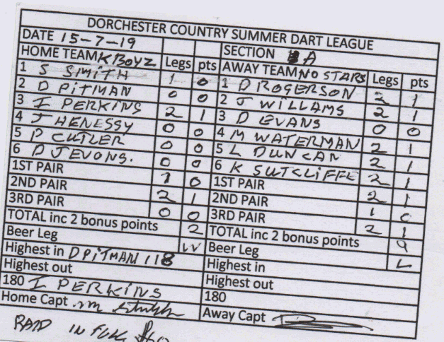 DORCHESTER COUNTRY SUMMER DART LEAGUE
DATE 15-7-19 SECTION A
HOME TEAM K BOYZ Legs pts AWAY TEAM NO STARS Legs pts
1 S SMITH 1 0 1 D ROGERSON 2 1
2 D PITMAN 0 0 2 J WILLAMS 2 1
3 I PERKINS 2 1 3 D EVANS 0 0
4 J HENESSY 0 0 4 M WATERMAN 2 1
5 P CUTLER 0 0 5 L DUNCAN 2 1
6 D JEVONS. 0 0 6 K SUTCLIFFE 2 1
1ST PAIR 1 0 1ST PAIR 2 1
2ND PAIR 2 1 2ND PAIR 1 0
3RD PAIR 0 0 3RD PAIR 2 1
TOTAL inc 2 bonus points 2 TOTAL inc 2 bonus points 9
Beer Leg W Beer Leg L
Highest in D PITMAN 118 Highest in
Highest out Highest out
180 I PERKINS 180
Home Capt Away Capt
PAID IN FULL